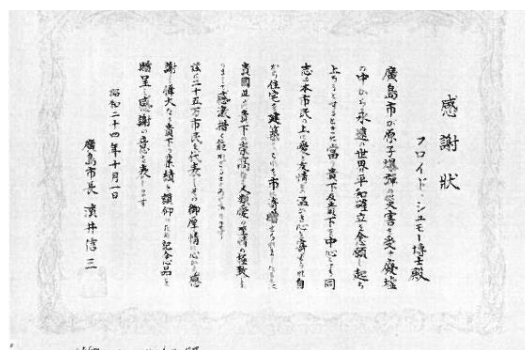 感謝状
フロイド・シュモー博士殿
廣島市が原子爆弾の災害を受け廢墟
の中から永遠の世界平和確立を念願し起ち
上ろうとするとき 貴下及貴下を中心とする同
志は本市民の上に愛と友情の温かき心を寄せられ自
から住宅を建築しこれを市に寄贈せられましたことは
貴國並に貴下の崇高な人類愛の至情の極致と
して感激措く能わざるところであります
茲に二十五万市民を代表しその御厚情に心から感
謝し偉大なる貴下の業績を顕仰するため記念品を
贈呈し感謝の意を表します
昭和二十四年十月一日
廣島市長 濱井信三